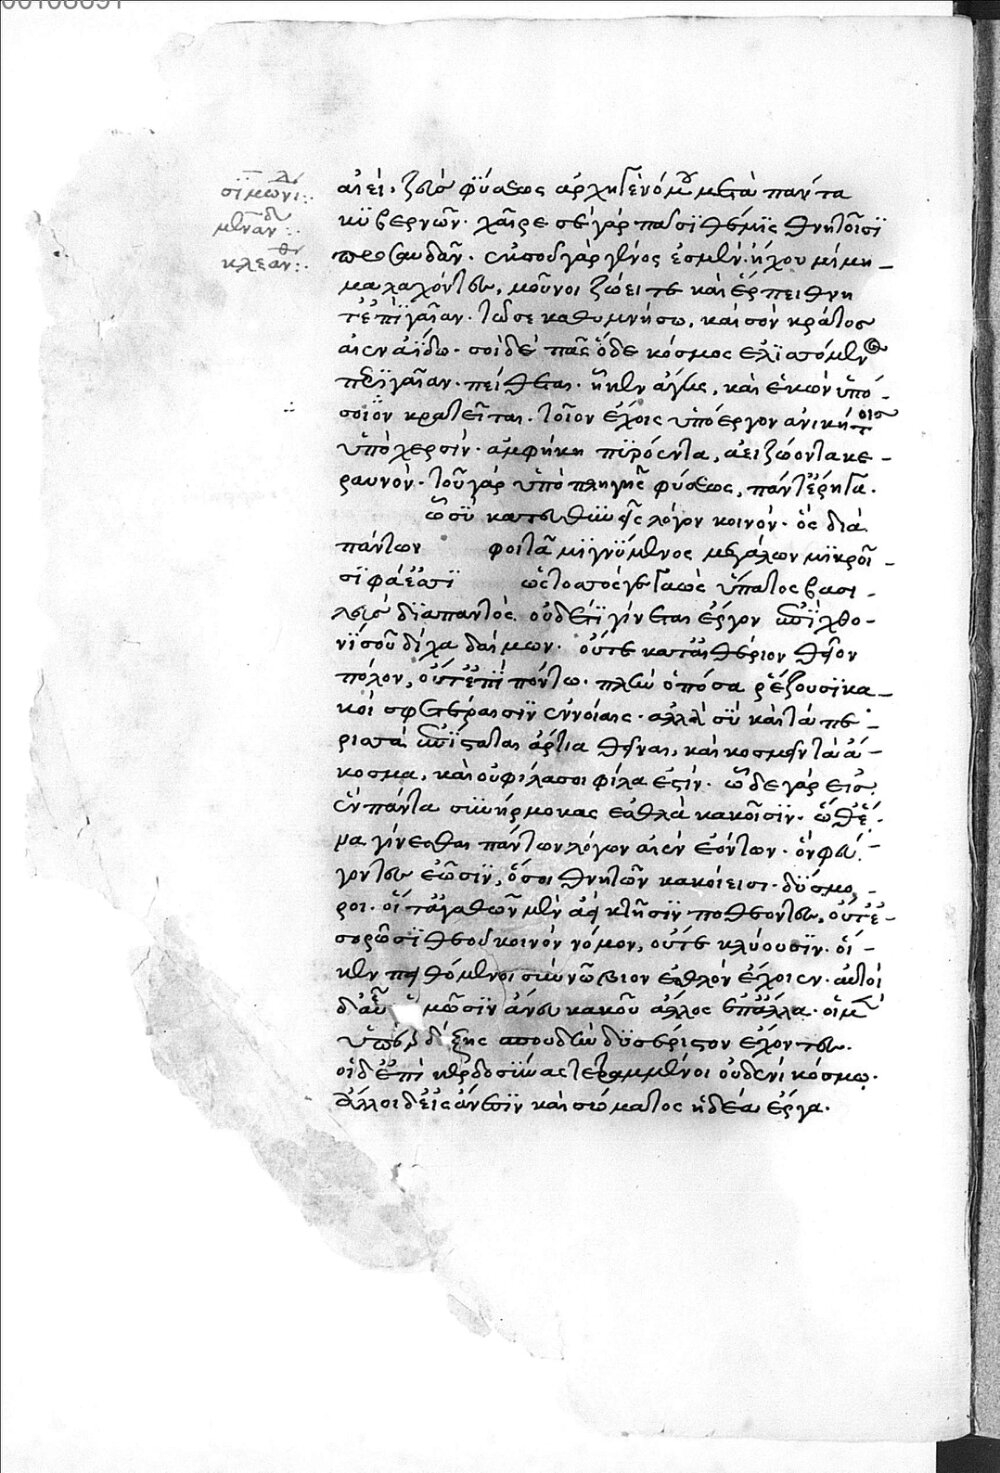 σϊμωνι:.
κλεαν:.
αἰεί. ζεῦ φϋσεως ἀρχηγὲ νόμου μετὰ πάντα
κϋβερνῶν. χαῖρε σὲ γὰρ πασϊ θέμϊς θνητοῖσϊ
προσαυδᾶν. ἐκ σοῦ γὰρ γένος ἐσμὲν ἤχου μίμη-
μα λαχόντες, μοῦνοι ζώει τε καὶ ἕρπει θνη
τ' ἐπϊ γαῖαν. τῶ σε καθυμνήσω, καὶ σὸν κράτος
αἰὲν ἀΐδω. σοὶ δὲ πᾶς ὅδε κόσμος ἑλϊσσόμενος
περϊ γαῖαν. πείθεται ἧκεν ἄγης, καὶ ἑκὼν ὑπὸ
σοῖον κρατεῖται. τοῖον ἔχοις ὑπόεργον ἀνικήτοισ
ὑπὸ χερσίν. ἀμφήκη πϋρόεντα, ἀειζώοντα κε-
ραυνόν. τοῦ γὰρ ὑπὸ πληγῆς φύσεως, πάντ' ἐρήγα.
ὧ σϋ κατευθύνης λόγον κοινόν. ὃς διὰ
πάντων φοιτᾶ μϊγνϋμενος μεγάλων μϊκροῖ-
σϊ φάεσσϊ ὡς τόσσος γεγαὼς ὕπατος βασι-
λεῦς διαπαντός. οὐδέ τϊ γίνεται ἔργον ἐπϊ χθο-
νϊ σοῦ δίχα δαίμων. οὔτε κατ' αἰθέριον θεῖον
πόλον, οὔτ' ἐπϊ πόντω. πλὴν ὁπόσα ῥέζουσϊ κα-
κοὶ σφετέραισϊν ἐννοίαις. ἀλλὰ σϋ καὶ τὰ πε-
ρισσὰ ἐπϊσταται ἄρτια θεῖναι, καὶ κοσμεῖν τὰ ἄ-
κοσμα, καὶ οὐ φίλα σοι φίλα ἐστίν. ὧδε γὰρ εἰς
ἓν πάντα συνήρμοκας ἐσθλὰ κακοῖσϊν. ὥσθ' ἕ-
να γίνεσθαι πάντων λόγον αἰὲν ἐόντων. ὃν φεύ-
γοντες ἐῶσϊν, ὅσοι θνητῶν κακοί εἰσι. δϋσμο-
ροι. οἵ τ' ἀγαθῶν μὲν ἀεὶ κτῆσϊν ποθέοντες, οὔτ' ἐ-
σορῶσϊ θεοῦ κοινὸν νόμον, οὔτε κλύουσϊν. ὧ-
κεν πειθόμενοι σὺν νῶ βίον ἐσθλὸν ἔχοιεν. αὐτοὶ
δ' αὖ ὁρμῶσϊν ἄνευ κακοῦ ἄλλος ἐπ' ἄλλα. οἱ μὲν
ὑπὲρ δόξης σπουδὴν δϋσέριστον ἔχοντες.
οἱ δ' ἐπὶ κερδοσϋνας τετραμμένοι οὐδενὶ κόσμω.
ἄλλοι δ' εἰς ἄνεσϊν καὶ σώματος ἡδέα ἔργα.